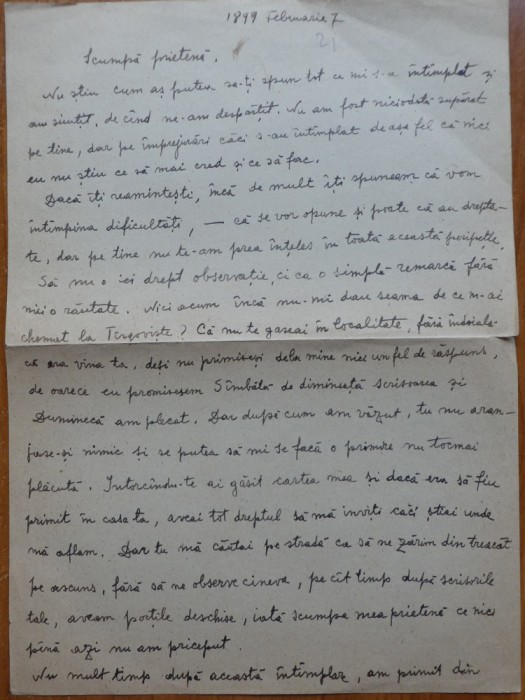 1899 Februarie 7
21
Scumpă prietenă,
Nu știu cum aș putea să-ți spun tot ce mi s-a întîmplat și
am simțit, de cînd ne-am despărțit. Nu am fost niciodată supărat
pe tine, dar pe împrejurări căci s-au întîmplat de așa fel că nici
eu nu știu ce să mai cred și ce să fac.
Dacă îți reamintești, încă de mult îți spuneam că vom
întîmpina dificultăți, — că se vor opune și poate că au drepta-
te, dar pe tine nu te-am prea înțeles în toată această peripeție.
Să nu o iei drept observație, ci ca o simplă remarcă fără
nici o răutate. Nici acum încă nu-mi dau seama de ce m-ai
chemat la Tîrgoviște? Că nu te găseai în localitate, fără îndoia-
că era vina ta, deși nu primiseși dela mine nici un fel de răspuns,
de oarece eu promisesem Sîmbătă de dimineață scrisoarea și
Duminecă am plecat. Dar după cum am văzut, tu nu aran-
jase-și nimic și se putea să mi se facă o primire nu tocmai
plăcută. Intorcîndu-te ai găsit cartea mea și dacă era să fiu
primit în casa ta, aveai tot dreptul să mă inviți căci știai unde
mă aflam. Dar tu mă căutai pe stradă ca să ne zărim din treacăt
pe ascuns, fără să ne observe cineva, pe cît timp după scrisorile
tale, aveam porțile deschise, iată scumpa mea prietenă ce nici
pînă azi nu am priceput.
Nu mult timp după această întîmplare, am primit din